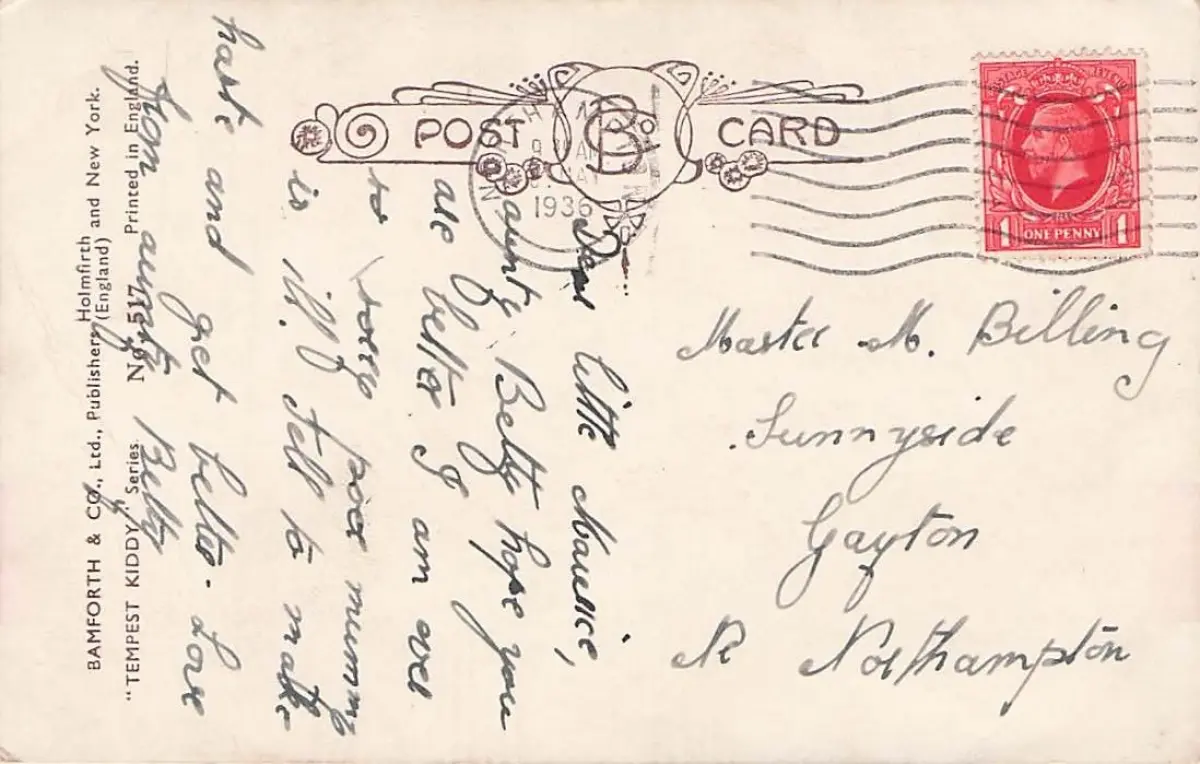 POST CARD
B & Co
1936
POSTAGE REVENUE
1 ONE PENNY 1
Master M. Billing
Sunnyside
Gayton
Nr Northampton
Dear little Maurice,
aunty Betty hope you
are better I am
so sorry poor mummy
is ill. Tell to make
haste and get better. Love
from aunty Betty
BAMFORTH & CO., Ltd., Publishers Holmfirth (England) and New York.
"TEMPEST KIDDY" Series No. 517 Printed in England.